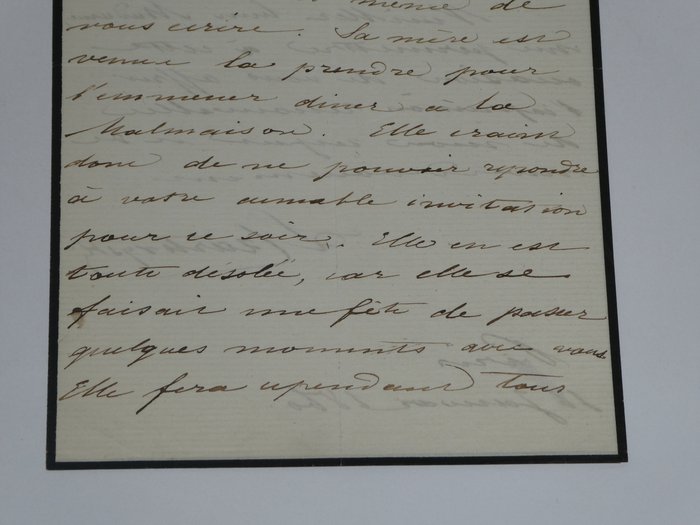 même de
vous écrire. Sa mère est
venue la prendre pour
l'emmener diner à la
Malmaison. Elle craint
donc de ne pouvoir répondre
à votre aimable invitation
pour ce soir. Elle en est
toute désolée, car elle se
faisait une fête de passer
quelques moments avec vous
Elle fera cependant tous